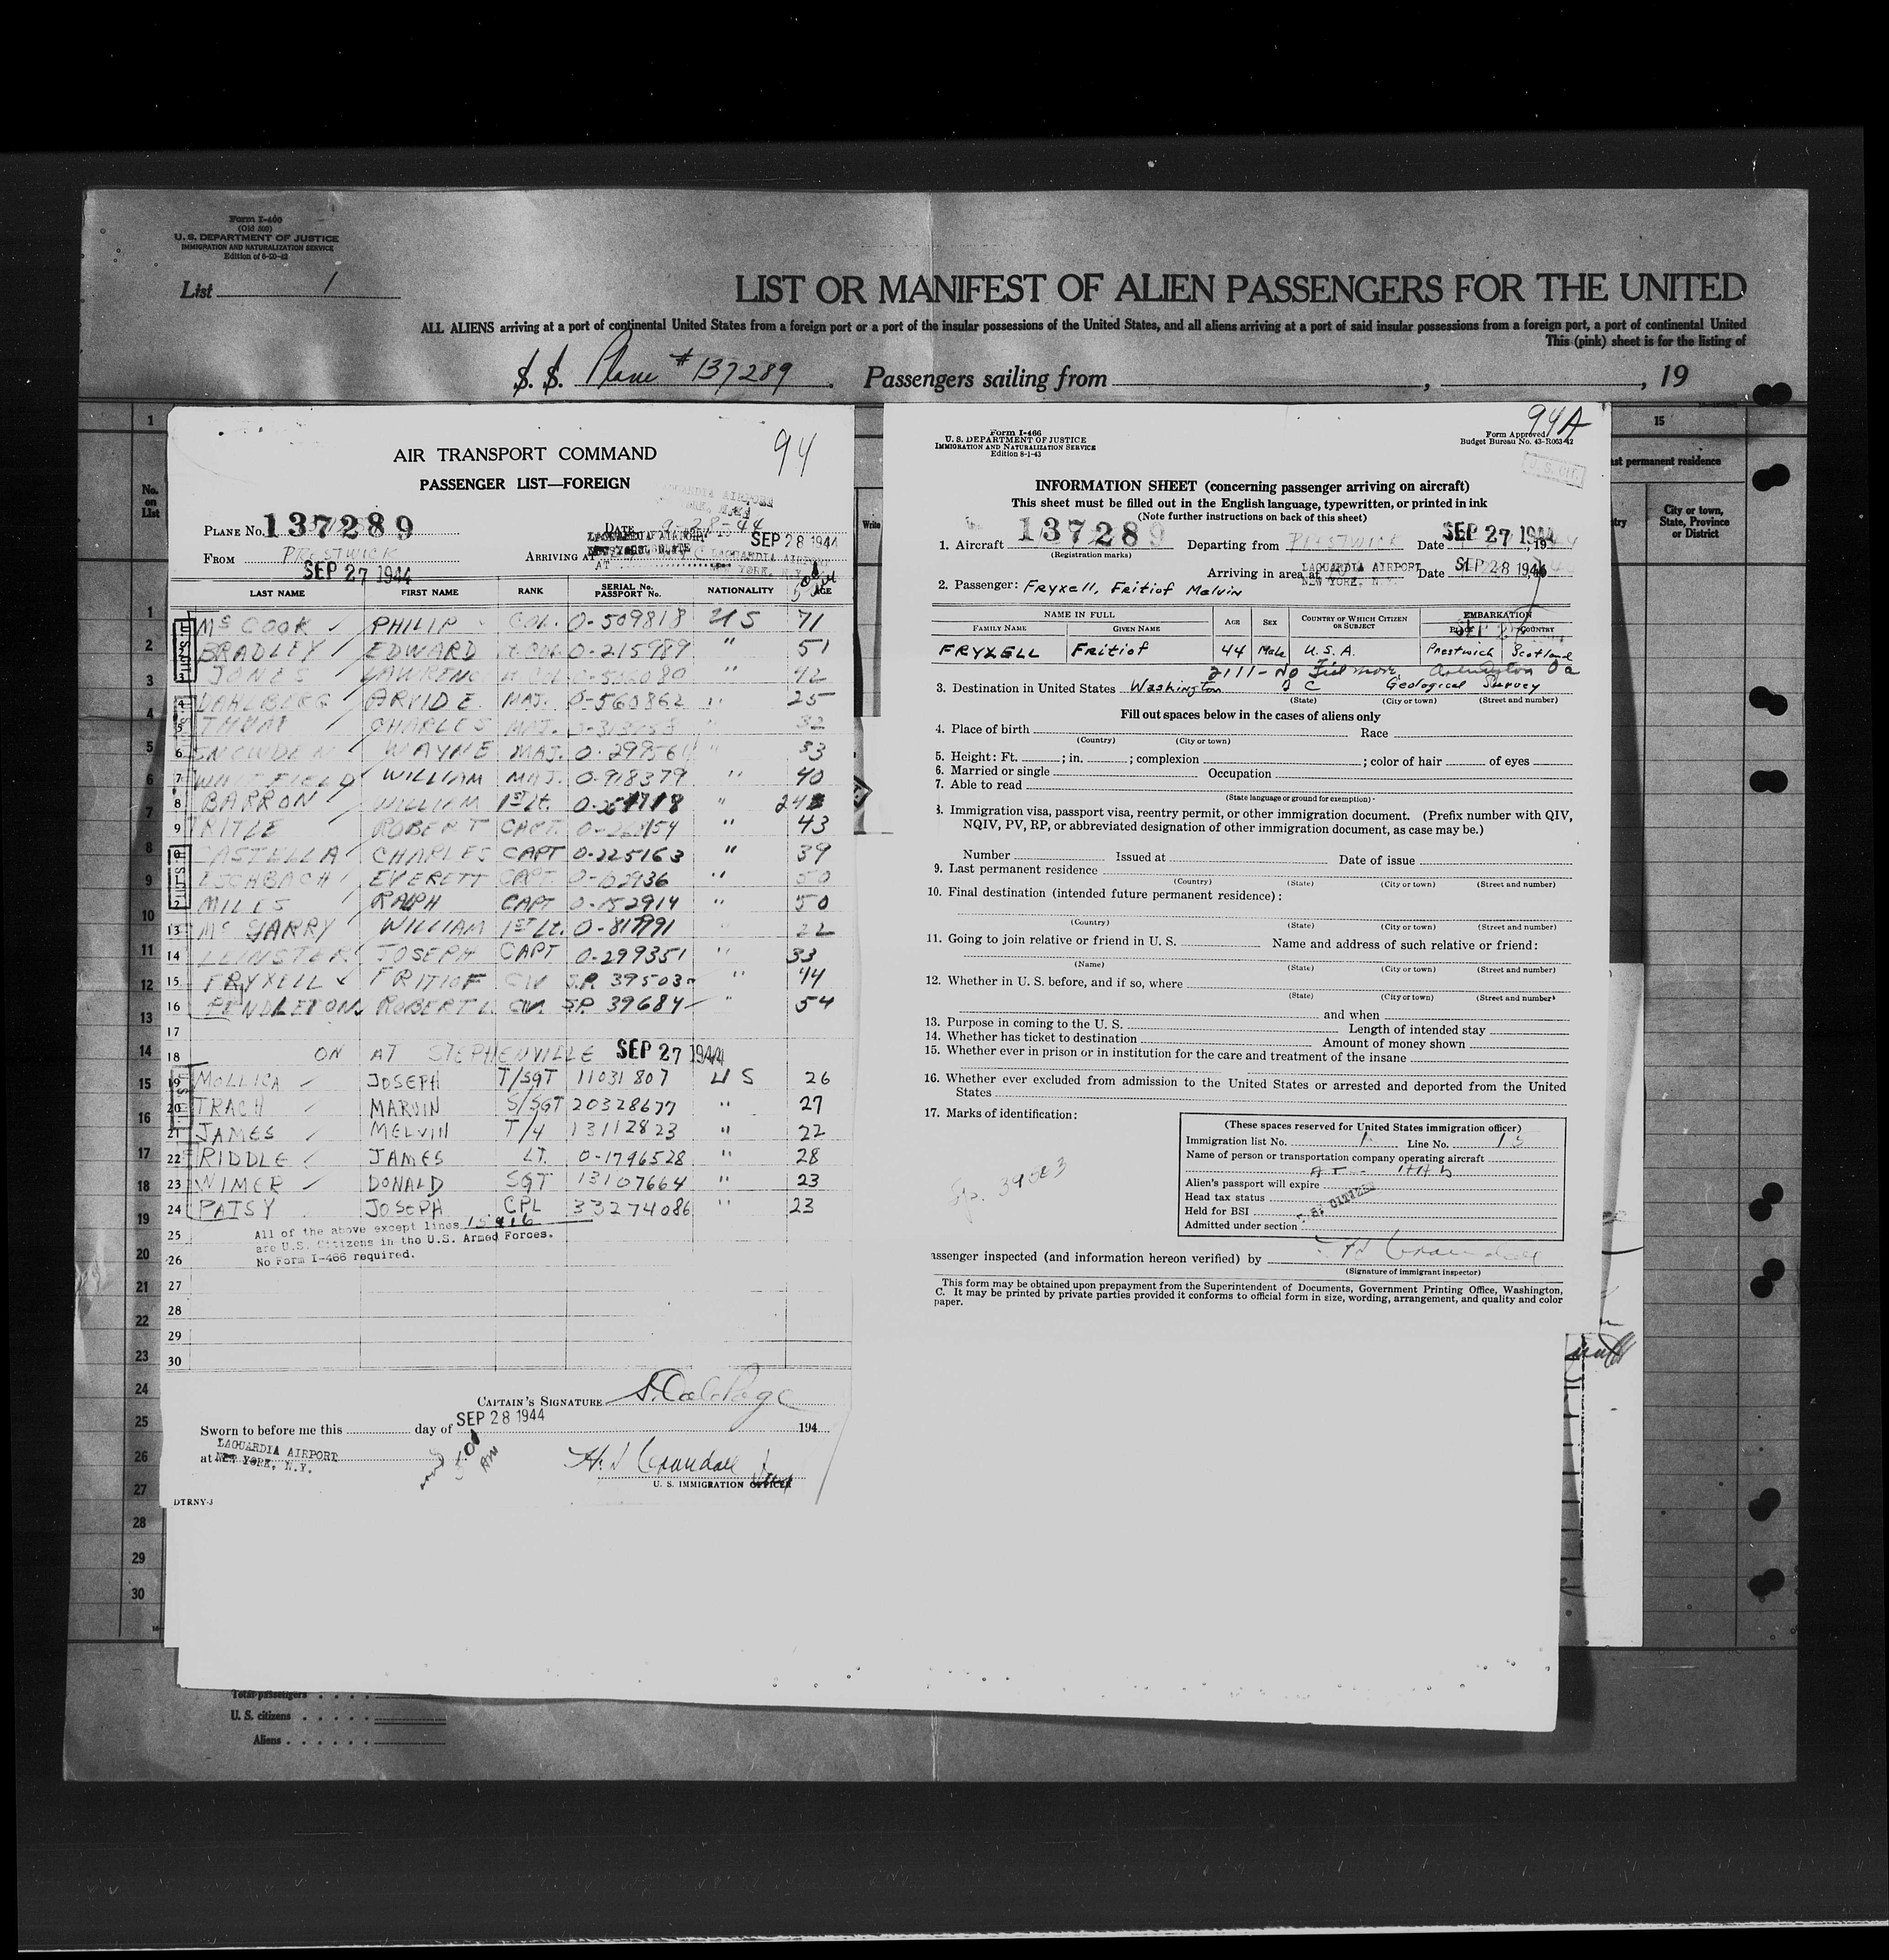 Form I-460
(Old 500)
U. S. DEPARTMENT OF JUSTICE
IMMIGRATION AND NATURALIZATION SERVICE
Edition of 6-20-42
List 1
LIST OR MANIFEST OF ALIEN PASSENGERS FOR THE UNITED
ALL ALIENS arriving at a port of continental United States from a foreign port or a port of the insular possessions of the United States, and all aliens arriving at a port of said insular possessions from a foreign port, a port of continental United
This (pink) sheet is for the listing of
S. S. Plane # 137289. Passengers sailing from , , 19
No. on List
AIR TRANSPORT COMMAND
94
PASSENGER LIST—FOREIGN
PLANE No. 137289 DATE 9-28-44
FROM PRESTWICK ARRIVING AT LAGUARDIA AIRPORT SEP 28 1944
SEP 27 1944
LAST NAME FIRST NAME RANK SERIAL No. PASSPORT No. NATIONALITY AGE
1 McCOOK PHILIP COL. O-509818 US 71
2 BRADLEY EDWARD O-215989 " 51
3 JONES 42
4 DAHLBERG ARVID E. MAJ. O-560862 " 25
5 CHARLES MAJ. " 32
6 SNOWDEN WAYNE MAJ. " 33
7 WILLIAM MAJ. O-918379 " 40
8 BARRON WILLIAM 1ST Lt. "
9 ROBERT CAPT. 43
10 CASTELLA CHARLES CAPT O-225163 " 39
11 ESCHBACH EVERETT CAPT. " 50
12 MILES RALPH CAPT O-152914 " 50
13 WILLIAM 1ST Lt. 22
14 LEINSTER JOSEPH CAPT O-299351 " 33
15 FRYXELL FRITIOF CIV S.P. 39503 " 44
16 PENDLETON ROBERT L. CIV. S.P. 39684 " 54
17
18 ON AT STEPHENVILLE SEP 27 1944
19 MOLLICA JOSEPH T/SGT 11031807 US 26
20 TRACH MARVIN S/SGT 20328677 " 27
21 JAMES MELVIN T/4 13112823 " 22
22 RIDDLE JAMES LT. O-1796528 " 28
23 WIMER DONALD SGT 13107664 " 23
24 PATSY JOSEPH CPL 33274086 " 23
25 All of the above except lines 15 & 16
are U.S. Citizens in the U.S. Armed Forces.
26 No Form I-466 required.
27
28
29
30
CAPTAIN'S SIGNATURE
Sworn to before me this day of SEP 28 1944 194
at LAGUARDIA AIRPORT
NEW YORK, N.Y.
H. J. Crandall
U. S. IMMIGRATION OFFICER
DTRNY-3
94A
Form I-466
U. S. DEPARTMENT OF JUSTICE
IMMIGRATION AND NATURALIZATION SERVICE
Edition 8-1-43
Form Approved
Budget Bureau No. 43-R063-42
U. S. CIT.
INFORMATION SHEET (concerning passenger arriving on aircraft)
This sheet must be filled out in the English language, typewritten, or printed in ink
(Note further instructions on back of this sheet)
1. Aircraft 137289 Departing from PRESTWICK Date SEP 27 1944, 19
(Registration marks)
Arriving in area at LAGUARDIA AIRPORT NEW YORK, N.Y. Date SEP 28 1944
2. Passenger: Fryxell, Fritiof Melvin
NAME IN FULL AGE SEX COUNTRY OF WHICH CITIZEN OR SUBJECT EMBARKATION
FAMILY NAME GIVEN NAME PLACE COUNTRY
FRYXELL Fritiof 44 Male U.S.A. Prestwick Scotland
2111-No Filmore, Arlington Va
3. Destination in United States Washington D C Geological Survey
(State) (City or town) (Street and number)
Fill out spaces below in the cases of aliens only
4. Place of birth Race
(Country) (City or town)
5. Height: Ft. ; in. ; complexion ; color of hair of eyes
6. Married or single Occupation
7. Able to read
(State language or ground for exemption)
8. Immigration visa, passport visa, reentry permit, or other immigration document. (Prefix number with QIV,
NQIV, PV, RP, or abbreviated designation of other immigration document, as case may be.)
Number Issued at Date of issue
9. Last permanent residence
(Country) (State) (City or town) (Street and number)
10. Final destination (intended future permanent residence):
(Country) (State) (City or town) (Street and number)
11. Going to join relative or friend in U. S. Name and address of such relative or friend:
(Name) (State) (City or town) (Street and number)
12. Whether in U. S. before, and if so, where
(State) (City or town) (Street and number)
and when
13. Purpose in coming to the U. S. Length of intended stay
14. Whether has ticket to destination Amount of money shown
15. Whether ever in prison or in institution for the care and treatment of the insane
16. Whether ever excluded from admission to the United States or arrested and deported from the United
States
17. Marks of identification:
(These spaces reserved for United States immigration officer)
Immigration list No. 1 Line No. 15
Name of person or transportation company operating aircraft
Alien's passport will expire
Head tax status
Held for BSI
Admitted under section
U. S. CITIZEN
assenger inspected (and information hereon verified) by
(Signature of immigrant inspector)
This form may be obtained upon prepayment from the Superintendent of Documents, Government Printing Office, Washington,
C. It may be printed by private parties provided it conforms to official form in size, wording, arrangement, and quality and color
paper.
15
ast permanent residence
City or town, State, Province or District
Write
Total passengers
U. S. citizens
Aliens